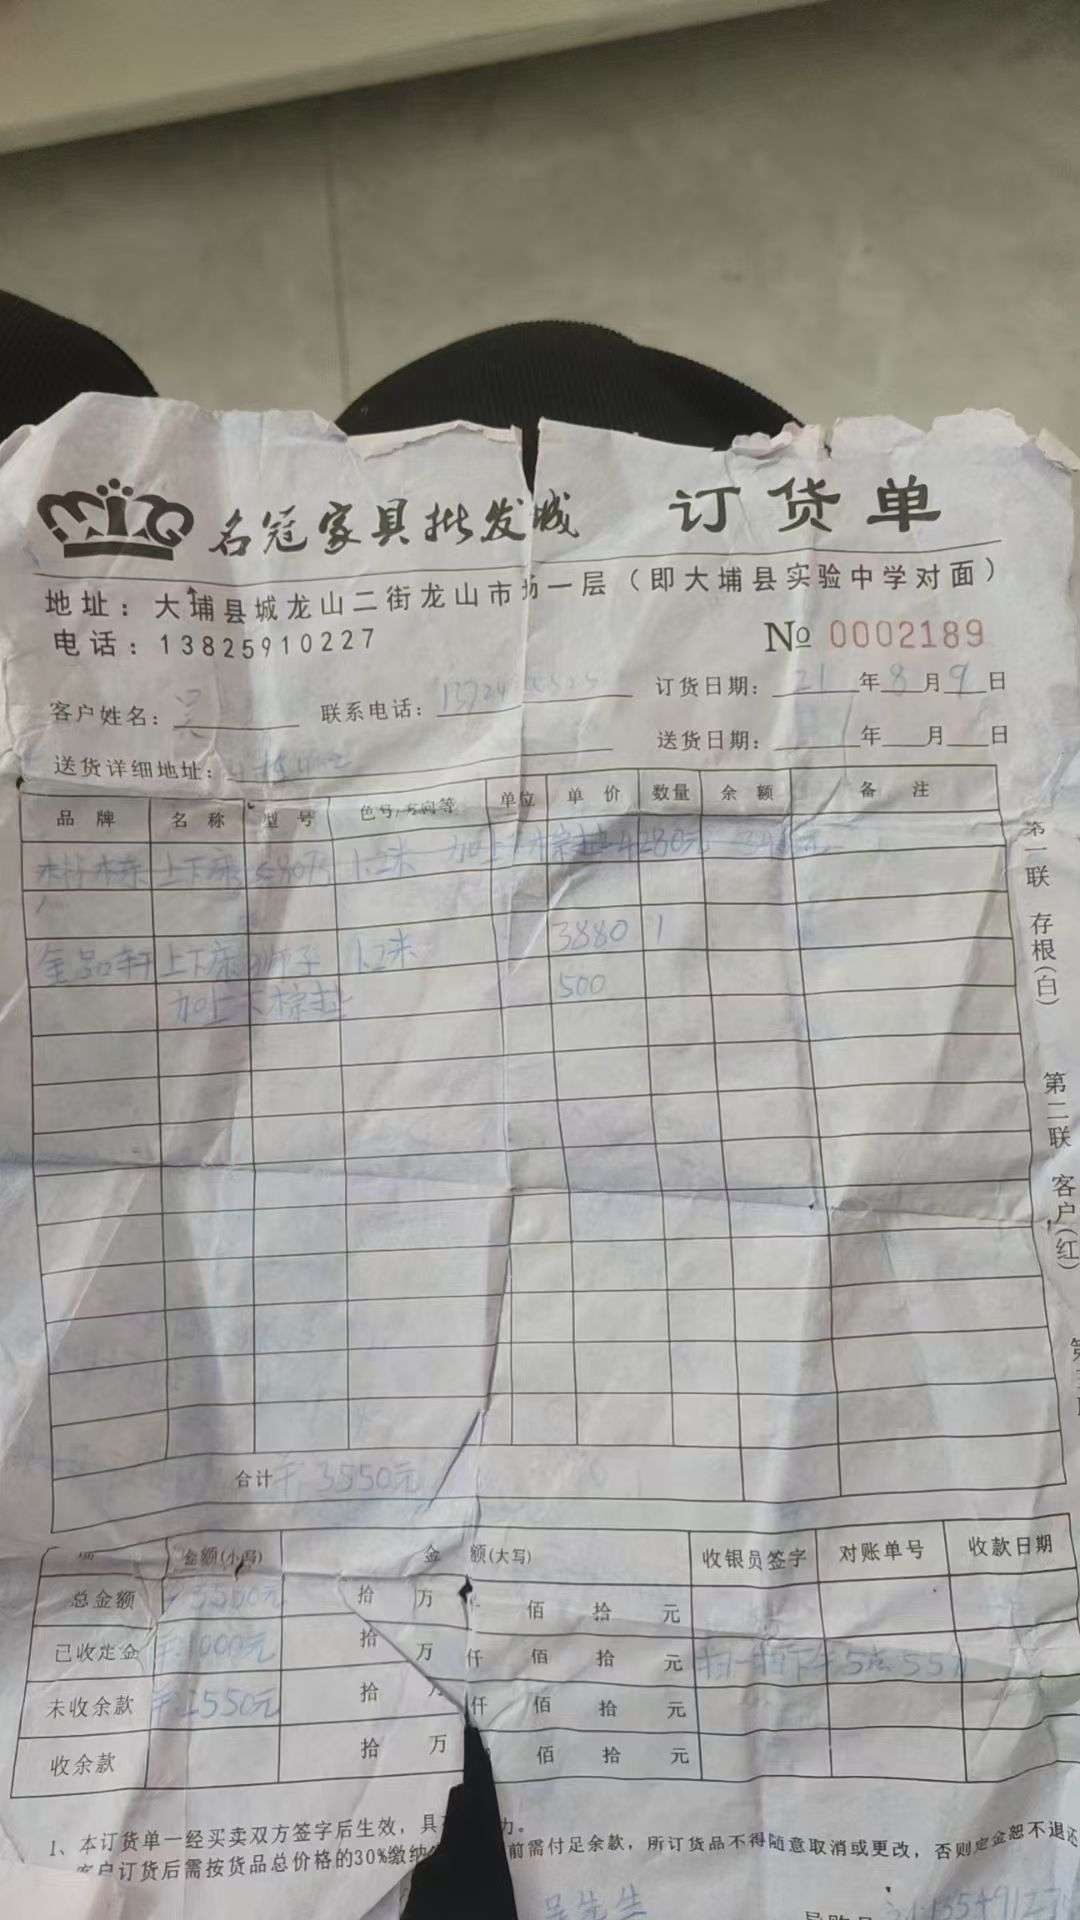 MIG 名冠家具批发城 订货单
地址：大埔县城龙山二街龙山市场一层（即大埔县实验中学对面）
电话：13825910227 № 0002189
客户姓名：吴 联系电话： 订货日期：21年8月9日
送货详细地址： 送货日期： 年 月 日
品牌 名称 型号 色号/方向等 单位 单价 数量 余额 备注
上下床 1.2米 加上下棕垫4280元
上下床 狮子 1.2米 3880 1
加上下棕垫 500
第一联 存根(白)
第二联 客户(红)
合计 ¥3550元
金额(小写) 金额(大写) 收银员签字 对账单号 收款日期
总金额 3550元 拾 万 佰 拾 元
已收定金 ¥1000元 拾 万 仟 佰 拾 元 扫一扫下午5点55
未收余款 ¥2550元 拾 万 仟 佰 拾 元
收余款 拾 万 佰 拾 元
1、本订货单一经买卖双方签字后生效，具 力。
客户订货后需按货品总价格的30%缴纳 前需付足余款，所订货品不得随意取消或更改，否则定金恕不退还
吴先生